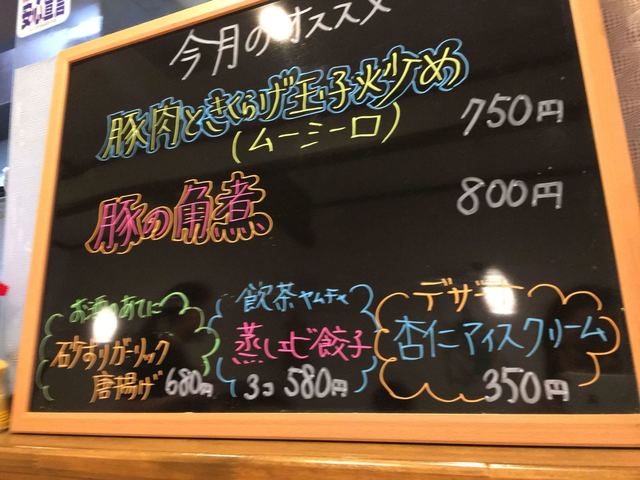 今月のオススメ
豚肉ときくらげ玉子炒め 750円
(ムーシーロ)
豚の角煮 800円
お酒のあてに
石少ずりガーリック
唐揚げ 680円
飲茶ヤムチャ
蒸しエビ餃子
3コ 580円
デザート
杏仁アイスクリーム
350円